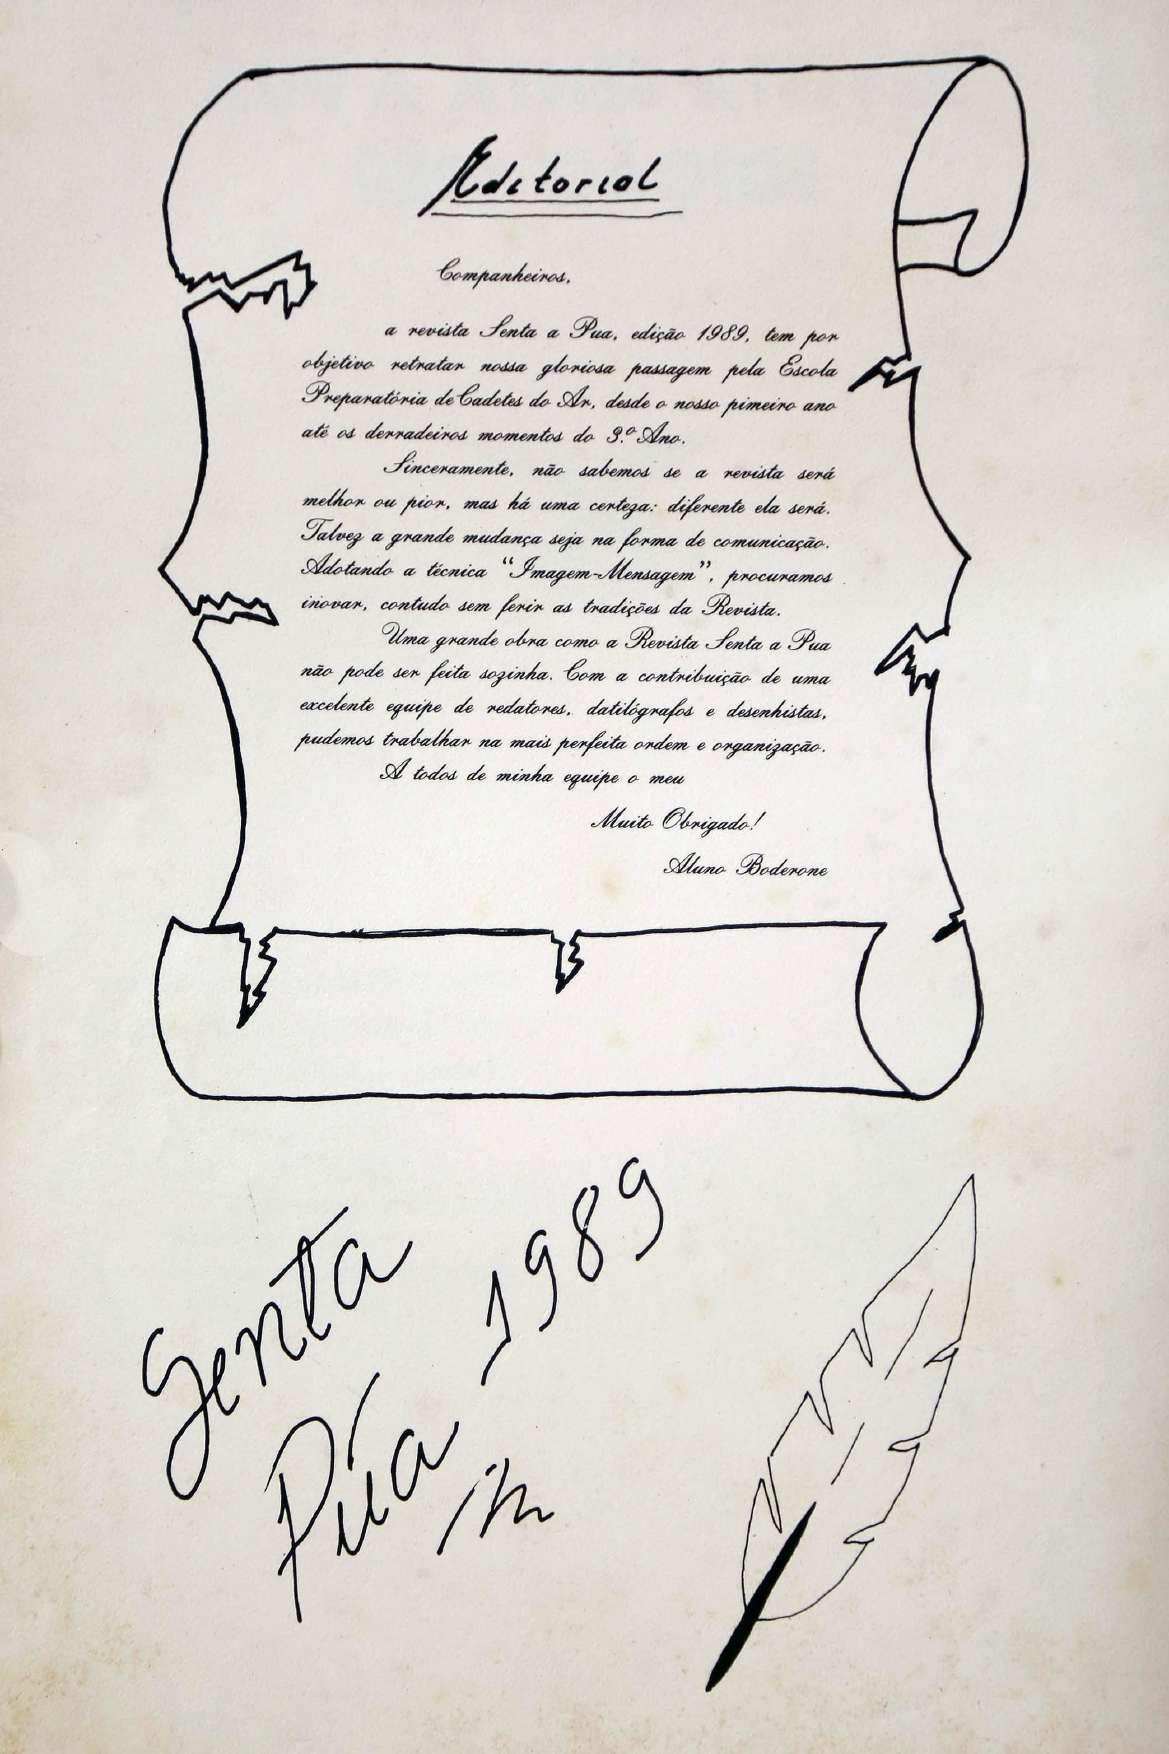 Editorial
Companheiros,
a revista Senta a Pua, edição 1989, tem por
objetivo retratar nossa gloriosa passagem pela Escola
Preparatória de Cadetes do Ar, desde o nosso pimeiro ano
até os derradeiros momentos do 3.º Ano.
Sinceramente, não sabemos se a revista será
melhor ou pior, mas há uma certeza: diferente ela será.
Talvez a grande mudança seja na forma de comunicação.
Adotando a técnica “Imagem-Mensagem”, procuramos
inovar, contudo sem ferir as tradições da Revista.
Uma grande obra como a Revista Senta a Pua
não pode ser feita sozinha. Com a contribuição de uma
excelente equipe de redatores, datilógrafos e desenhistas,
pudemos trabalhar na mais perfeita ordem e organização.
A todos de minha equipe o meu
Muito Obrigado!
Aluno Boderone
Senta
Púa 1989